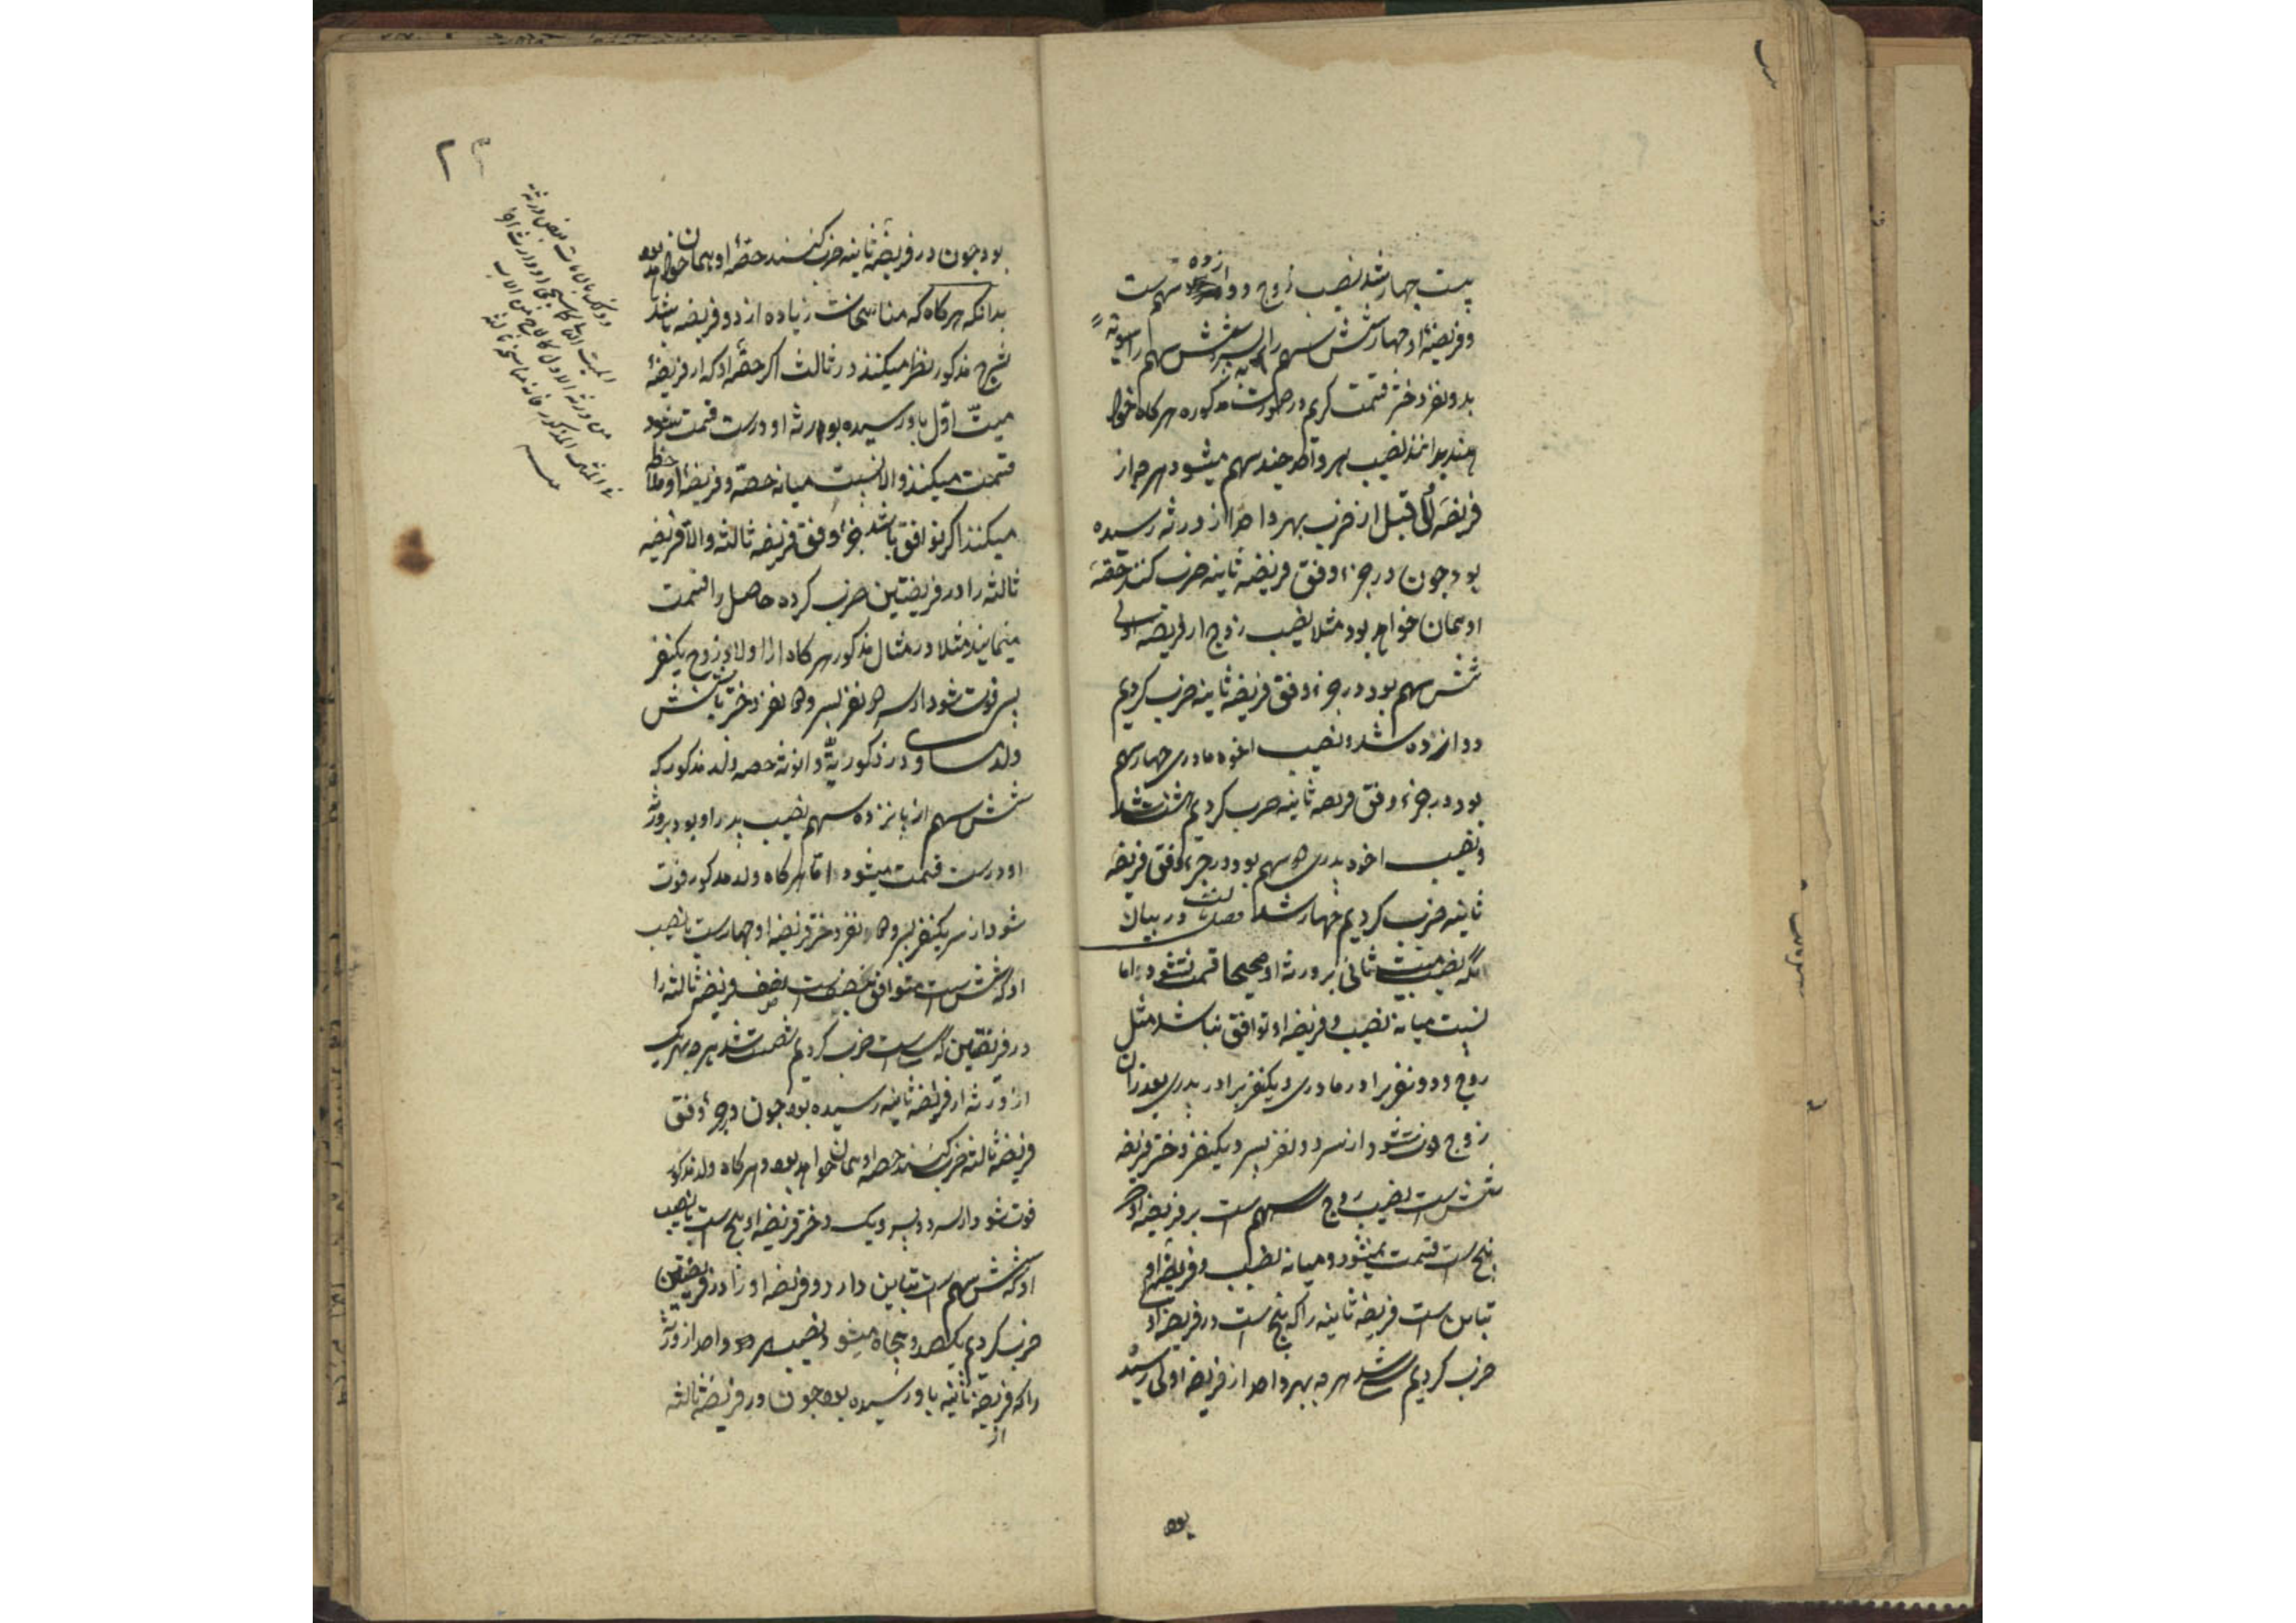 بیست چهار شد نصیب زوج دوازده سهم است
و فریضهٔ او چهار شش سهم را به پسر و شش سهم را سویة
بدو نفر دختر قسمت کردیم در صورت مذکوره هرگاه خوا
هند بدانند نصیب هر واحد چند سهم میشود هرچه از
فریضه اولی قبل از ضرب بهر واحد از ورثه رسیده
بود چون در جزء وفق فریضه ثانیه ضرب کنند حصّه
او همان خواهد بود مثلا نصیب زوج از فریضه اولی
شش سهم بود در جزء وفق فریضه ثانیه ضرب کردیم
دوازده شد و نصیب اخوه مادری چهار سهم
بود در جزء وفق فریضه ثانیه ضرب کردیم هشت شد
و نصیب اخوه پدری دو سهم بود در جزء وفق فریضه
ثانیه ضرب کردیم چهار شد فصل ثالث در بیان
آنکه نصیب میت ثانی بر ورثه او صحیحا قسمت نشود اما
نسبت میانه نصیب و فریضه او توافق نباشد مثل
زوج و دو نفر برادر مادری و یکنفر برادر پدری بعد از آن
زوج فوت شود از سر دو نفر پسر و یکنفر دختر فریضه
شش است نصیب زوج سه سهم است بر فریضه او که
پنج است قسمت نمیشود و میانه نصیب و فریضه او
تباین است فریضه ثانیه را که پنج است در فریضه اولی
ضرب کردیم سی شد هرچه بهر واحد از فریضه اولی رسیده
بود
۲۳
بود چون در فریضه ثانیه ضرب کنند حصّهٔ او همان خواهد بود
بدانکه هرگاه که مناسخات زیاده از دو فریضه باشد
بشرح مذکور نظر میکنند در ثالث اگر حصّهٔ او که از فریضهٔ
میّت اوّل باو رسیده بورثه او درست قسمت شود
قسمت میکنند و الا نسبت میانه حصّه و فریضهٔ او ملاحظه
میکنند اگر توافق باشد جزء وفق فریضه ثالثه و الا فریضه
ثالثه را در فریضتین ضرب کرده حاصل را قسمت
مینمایند مثلا در مثال مذکور هرگاه از اولاد زوج یکنفر
پسر فوت شود از سر دو نفر پسر و دو نفر دختر یا شش
ولد مساوی در ذکوریة و انوثة حصه ولد مذکور که
شش سهم از پانزده سهم نصیب پدر او بود بر ورثه
او درست قسمت میشود اما هرگاه ولد مذکور فوت
شود از سر یکنفر پسر و دو نفر دختر فریضه او چهار است با نصیب
او که شش است متوافق بنصف است نصف فریضه ثالثه را
در فریضتین که سی است ضرب کردیم شصت شد هرچه بهر یک
از ورثه از فریضه ثانیه رسیده بود چون در جزء وفق
فریضه ثالثه ضرب کنند حصه او همان خواهد بود و هرگاه ولد مذکور
فوت شود از سر دو پسر و یک دختر فریضه او پنج است با نصیب
او که شش سهم است تباین دارد و فریضه او را در فریضتین
ضرب کردیم یکصد و پنجاه میشود و نصیب هر واحد از ورثه
را که فریضه ثانیه باو رسیده بود چون در فریضه ثالثه
از